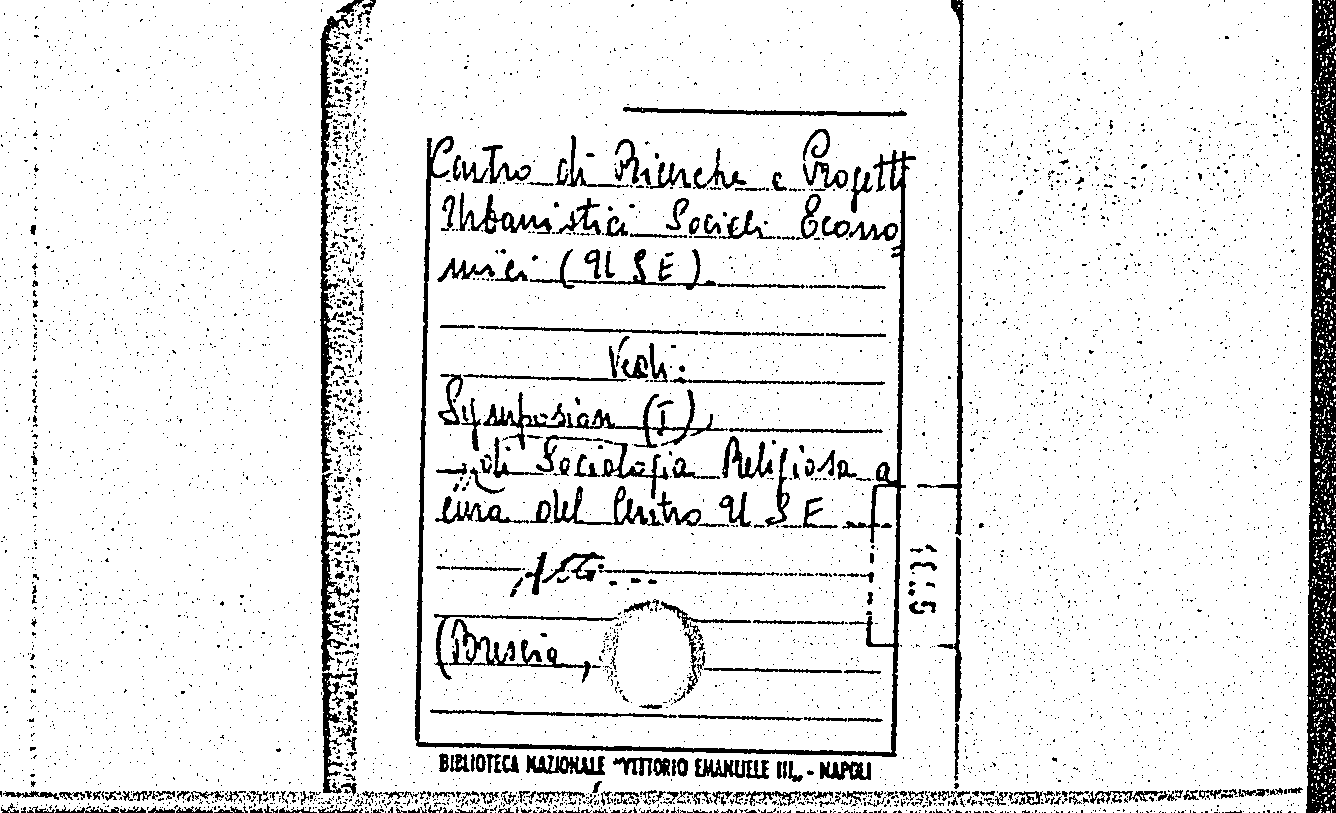 Centro di Ricerche e Progetti
Urbanistici Sociali Econo
mici (USE).
Vedi:
Symposion (I),
di Sociologia Religiosa a
cura del Centro USE
(Brescia,
BIBLIOTECA NAZIONALE "VITTORIO EMANUELE III„ - NAPOLI